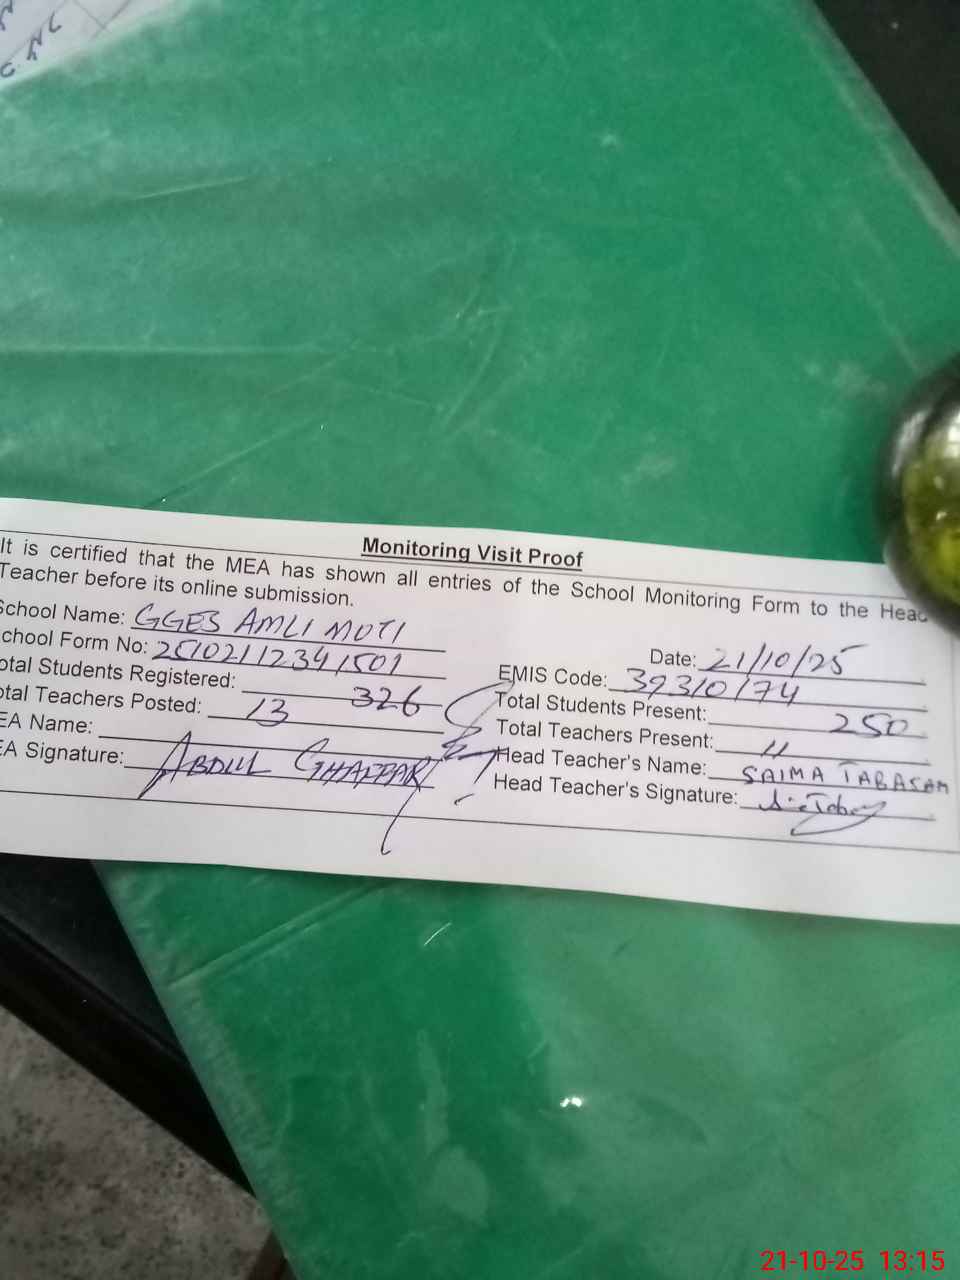 Monitoring Visit Proof
It is certified that the MEA has shown all entries of the School Monitoring Form to the Head
Teacher before its online submission.
School Name: GGES AMLI MOTI
Date: 21/10/25
chool Form No: 25102112341501
EMIS Code: 39310174
otal Students Registered: 326
Total Students Present: 250
otal Teachers Posted: 13
Total Teachers Present: 11
EA Name: ABDUL GHAFFAR
Head Teacher's Name: SAIMA TABASAM
EA Signature:
Head Teacher's Signature:
21-10-25 13:15